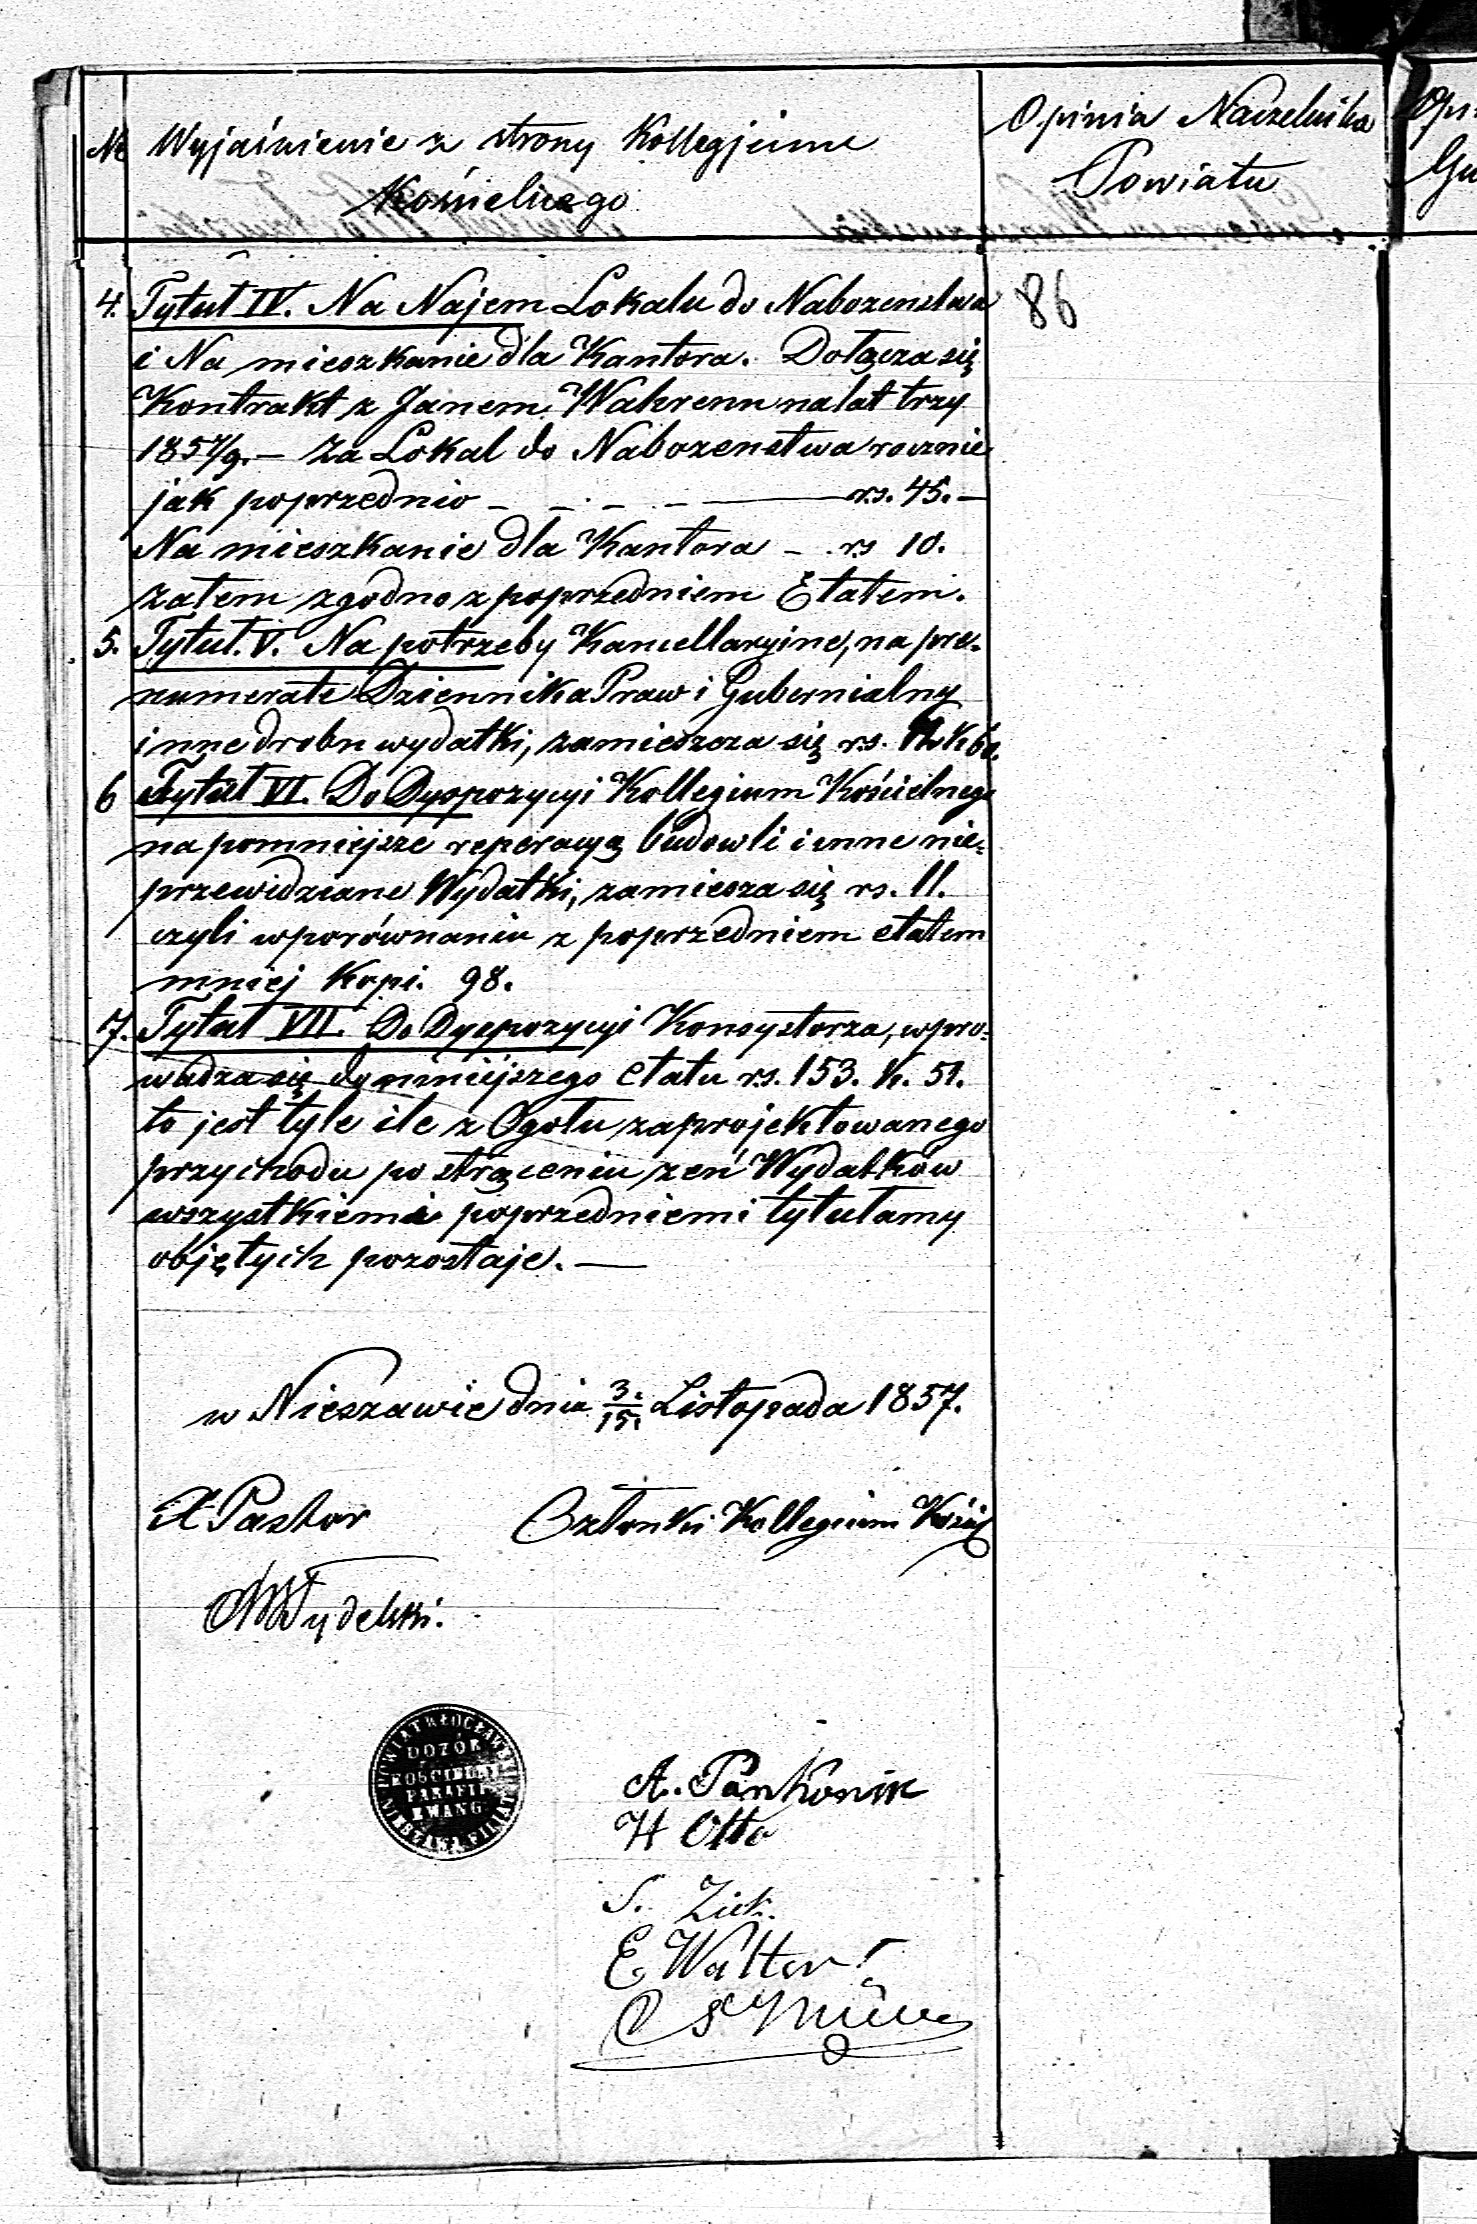 № Wyjaśnienie z strony Kollegjum
Kościelnego
Opinia Naczelnika
Powiatu
Opi
Gu
86
4. Tytuł IV. Na Najem Lokalu do Nabozenstwa
i Na mieszkanie dla Kantora. Dołącza się
Kontrakt z Janem Wahrenn na lat trzy
1857/9. – Za Lokal do Nabozenstwa rocznie
jak poprzednio – – – – rs. 45. –
Na mieszkanie dla Kantora – rs 10.
zatem zgodno z poprzedniem Etatem.
5. Tytuł. V. Na potrzeby Kancellaryine, na pre-
numerate Dziennika Praw i Gubernialny
inne drobn wydatki, zamieszcza się rs. 12 k 60.
6 Tytuł VI. Do Dyspozycyi Kollegium Kościelnego
na pomniejsze reperacyą budowli i inne nie-
przewidziane Wydatki, zamiesza się rs. 11.
czyli wporównaniu z poprzedniem etatem
mniej Kopi. 98.
7. Tytuł VII. Do Dyspozycyi Konsystorza, wpro-
wadza się do niniejszego etatu rs. 153. k. 51.
to jest tyle ile z Ogołu zaprojektowanego
przychodu po strąceniu zeń Wydatków
wszystkiemi poprzedniemi tytułamy
objętych pozostaje. –
w Nieszawie dnia 3/15. Listopada 1857.
X Pastor
Członki Kollegium Kości
POWIAT WŁOCŁAWSKI
DOZÓR
KOŚCIELNY
PARAFII
EWANG
A. Pankonin
H Otto
S. Zick.
E. Walter